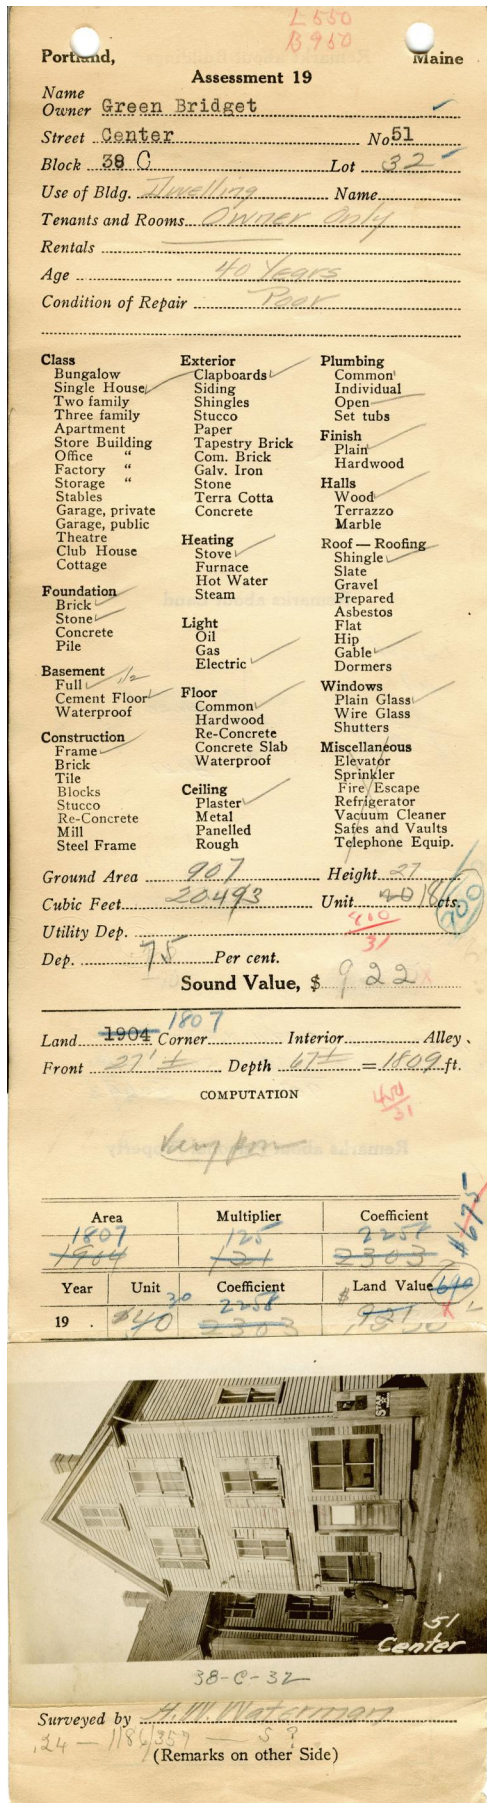 L 550
B 950
Portland, Maine
Assessment 19
Name
Owner Green Bridget
Street Center No 51
Block 38 C Lot 32
Use of Bldg. Dwelling Name
Tenants and Rooms Owner Only
Rentals
Age 40 Years
Condition of Repair Poor
Class
Bungalow
Single House
Two family
Three family
Apartment
Store Building
Office "
Factory "
Storage "
Stables
Garage, private
Garage, public
Theatre
Club House
Cottage
Foundation
Brick
Stone
Concrete
Pile
Basement
Full 1/2
Cement Floor
Waterproof
Construction
Frame
Brick
Tile
Blocks
Stucco
Re-Concrete
Mill
Steel Frame
Exterior
Clapboards
Siding
Shingles
Stucco
Paper
Tapestry Brick
Com. Brick
Galv. Iron
Stone
Terra Cotta
Concrete
Heating
Stove
Furnace
Hot Water
Steam
Light
Oil
Gas
Electric
Floor
Common
Hardwood
Re-Concrete
Concrete Slab
Waterproof
Ceiling
Plaster
Metal
Panelled
Rough
Plumbing
Common
Individual
Open
Set tubs
Finish
Plain
Hardwood
Halls
Wood
Terrazzo
Marble
Roof — Roofing
Shingle
Slate
Gravel
Prepared
Asbestos
Flat
Hip
Gable
Dormers
Windows
Plain Glass
Wire Glass
Shutters
Miscellaneous
Elevator
Sprinkler
Fire Escape
Refrigerator
Vacuum Cleaner
Safes and Vaults
Telephone Equip.
Ground Area 907 Height 27
Cubic Feet 20493 Unit 20 18 cts.
700
Utility Dep.
31
Dep. 75 Per cent.
Sound Value, $ 922
1807
Land 1904 Corner Interior Alley
Front 27' ± Depth 67 ± = 1809 ft.
COMPUTATION
31
Area Multiplier Coefficient
1807 125 2258
1904 121 2303
$675
Year Unit Coefficient Land Value 690
30 2258 $
19 . $40 2303 921
51
Center
38-C-32
Surveyed by H. W. Waterman
(Remarks on other Side)